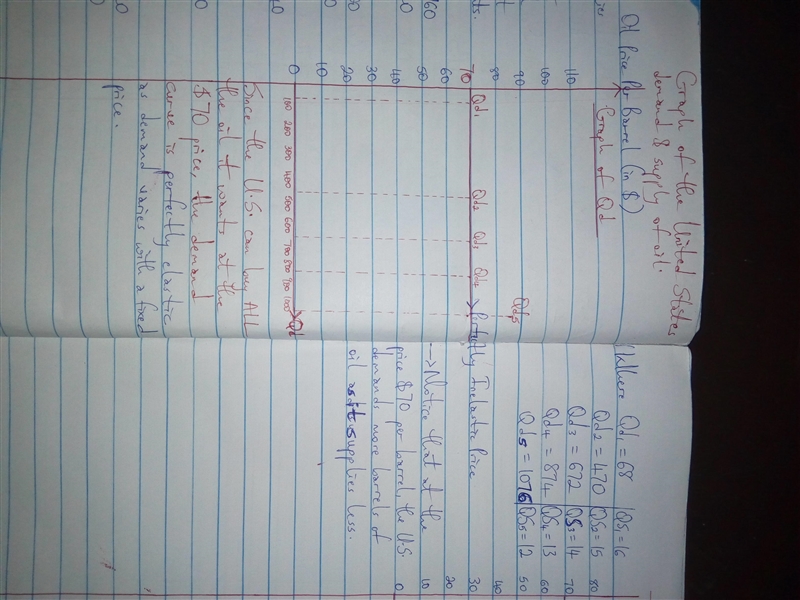 Graph of the United States
demand & supply of oil.
Oil Price Per Barrel (in $)
Graph of Qd
110
100
90
80
70
60
50
40
30
20
10
0
Qd₁
Qd₂
Qd₃
Qd₄
Qd₅
Inelastic Price
100 200 300 400 500 600 700 800 900 1000
Qd
Since the U.S. can buy ALL
the oil it wants at the
$70 price, the demand
curve is perfectly elastic
as demand varies with a fixed
price.
Where Qd₁ = 68 QS₁=16
Qd₂ = 470 QS₂=15
Qd₃ = 672 QS₃=14
Qd₄ = 874 QS₄=13
Qd₅ = 1076 QS₅=12
→ Notice that at the
price $70 per barrel, the U.S.
demands more barrels of
oil as it supplies less.
80
70
60
50
40
30
20
10
0